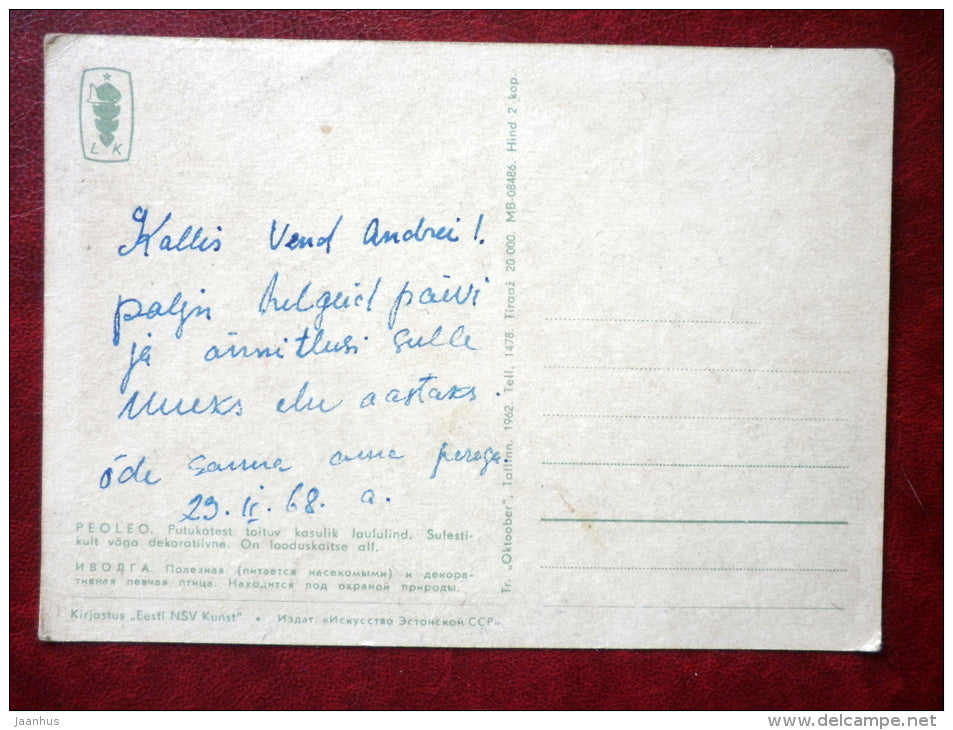 L K
Kallis Vend Andrei!
palju helgeid päivi
ja õnnitlusi sulle
uueks elu aastaks.
õde sanna oma perega.
23. II. 68. a.
PEOLEO. Putukatest toituv kasulik laululind. Sulesti-
kult väga dekoratiivne. On looduskaitse all.
ИВОЛГА. Полезная (питается насекомыми) и декора-
тивная певчая птица. Находится под охраной природы.
Kirjastus „Eesti NSV Kunst" • Издат. «Искусство Эстонской ССР»
Tr. „Oktoober", Tallinn, 1962. Tell. 1478. Tiraaž 20 000. MB-08486. Hind 2 kop.
Jaanhus
www.delcampe.net